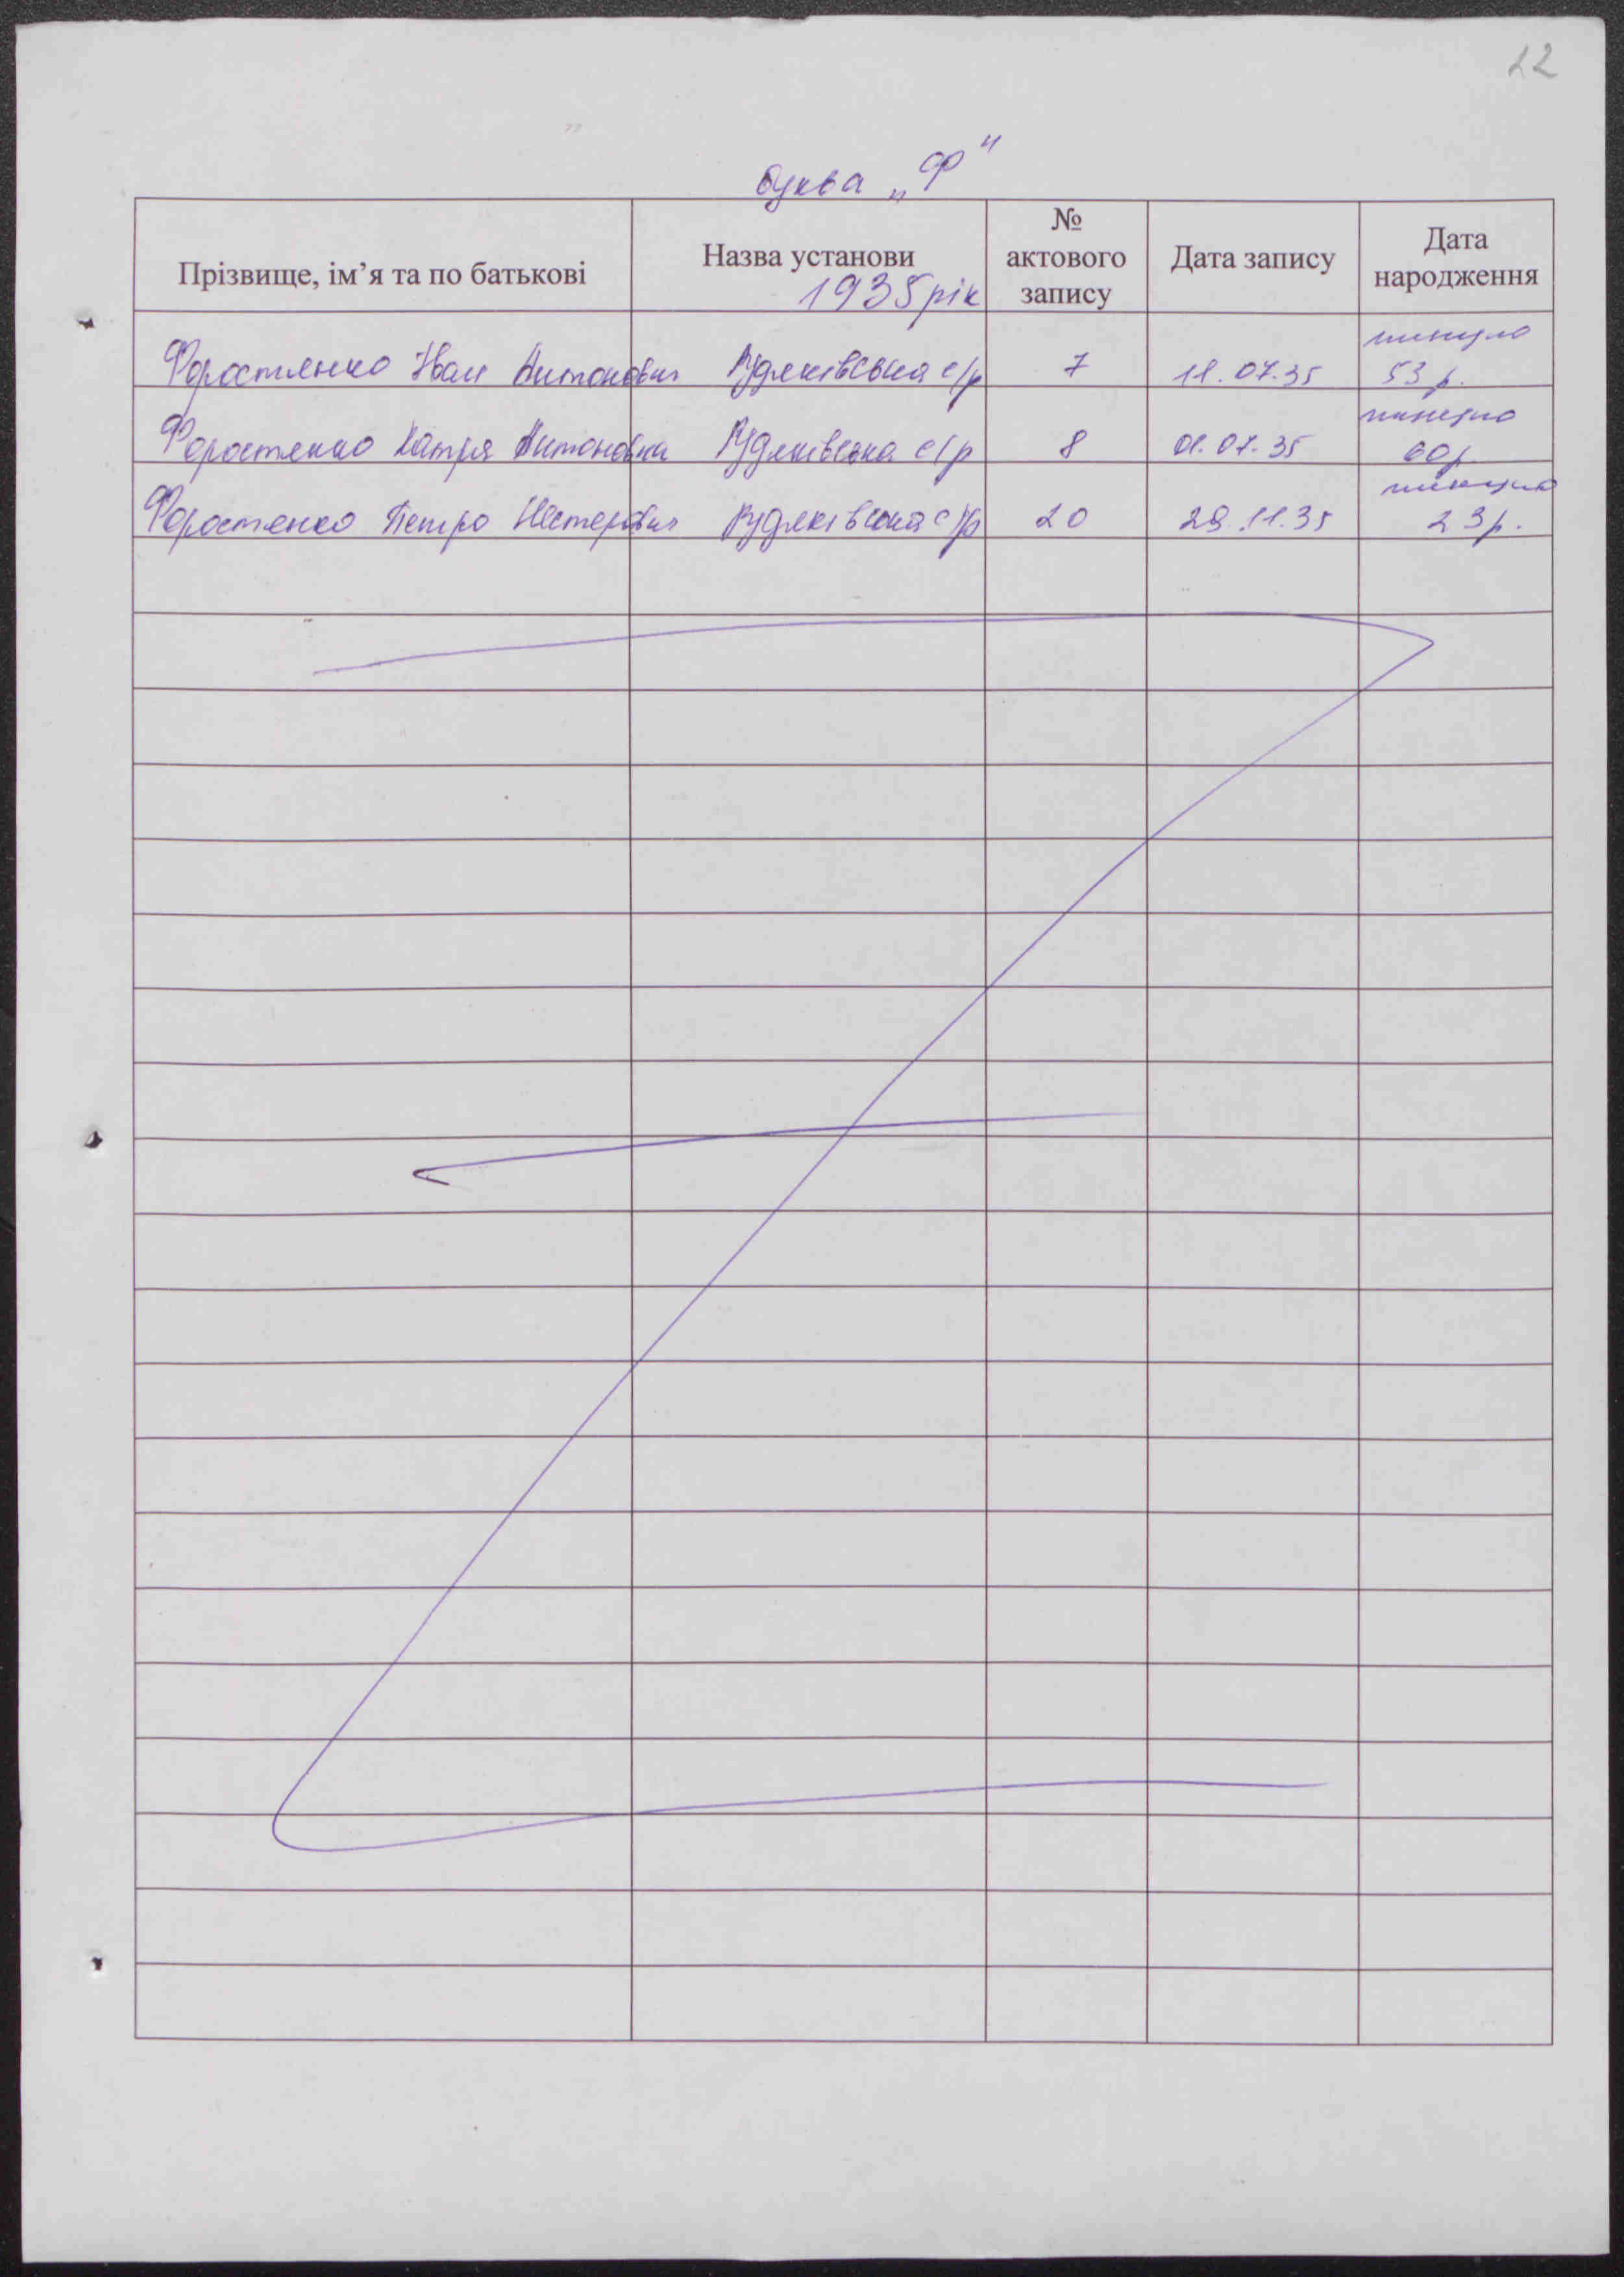 22
буква „Ф"
Прізвище, ім’я та по батькові Назва установи 1935 рік № актового запису Дата запису Дата народження
Форостенко Іван Антонович Рудяківська с/р 7 11.07.35 минуло 53 р.
Форостенко Катря Антоновна Рудяківська с/р 8 01.07.35 минуло 60 р.
Форостенко Петро Нестерович Рудяківська с/р 20 29.11.35 минуло 23 р.